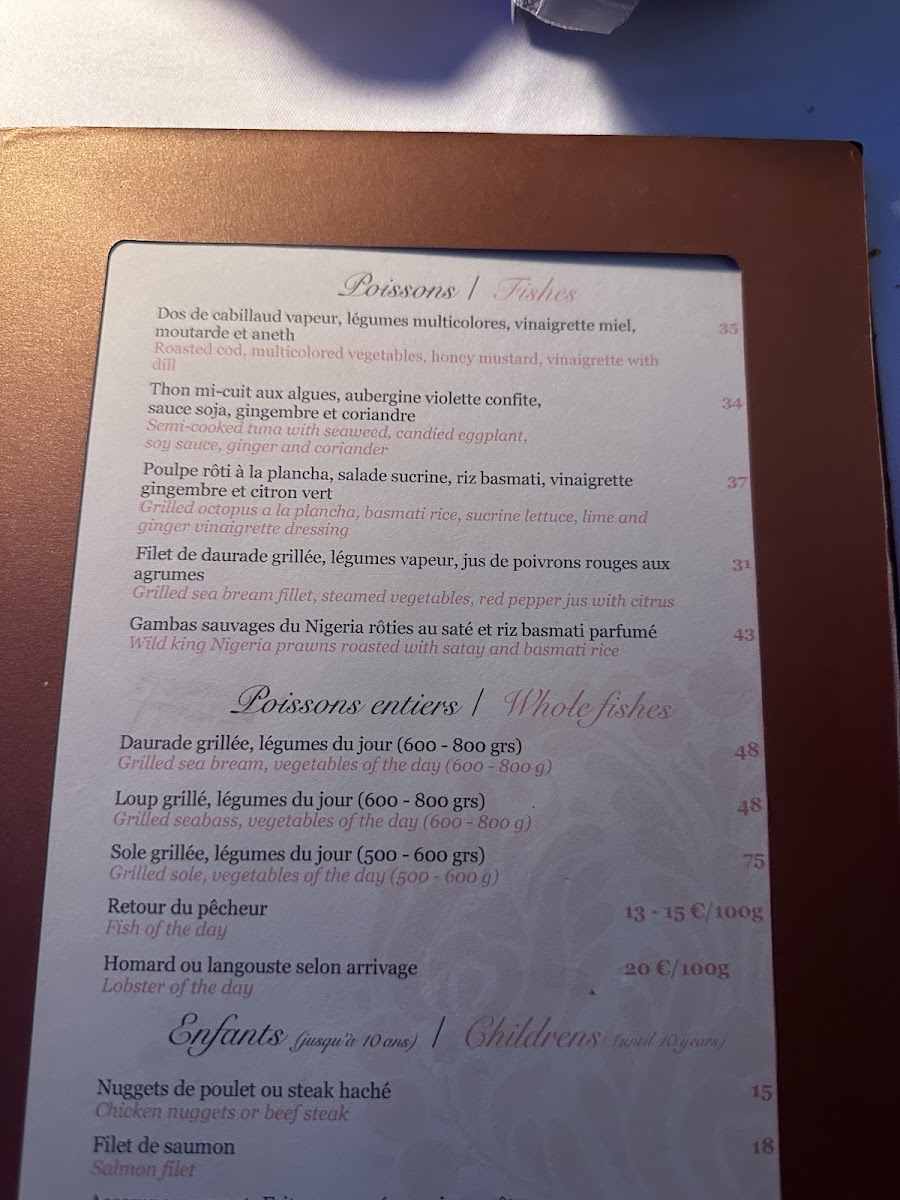 Poissons | Fishes
Dos de cabillaud vapeur, légumes multicolores, vinaigrette miel,
moutarde et aneth
35
Roasted cod, multicolored vegetables, honey mustard, vinaigrette with
dill
Thon mi-cuit aux algues, aubergine violette confite,
sauce soja, gingembre et coriandre
34
Semi-cooked tuna with seaweed, candied eggplant,
soy sauce, ginger and coriander
Poulpe rôti à la plancha, salade sucrine, riz basmati, vinaigrette
gingembre et citron vert
37
Grilled octopus a la plancha, basmati rice, sucrine lettuce, lime and
ginger vinaigrette dressing
Filet de daurade grillée, légumes vapeur, jus de poivrons rouges aux
agrumes
31
Grilled sea bream fillet, steamed vegetables, red pepper jus with citrus
Gambas sauvages du Nigeria rôties au saté et riz basmati parfumé
43
Wild king Nigeria prawns roasted with satay and basmati rice
Poissons entiers | Whole fishes
Daurade grillée, légumes du jour (600 - 800 grs)
48
Grilled sea bream, vegetables of the day (600 - 800 g)
Loup grillé, légumes du jour (600 - 800 grs)
48
Grilled seabass, vegetables of the day (600 - 800 g)
Sole grillée, légumes du jour (500 - 600 grs)
75
Grilled sole, vegetables of the day (500 - 600 g)
Retour du pêcheur
13 - 15 €/100g
Fish of the day
Homard ou langouste selon arrivage
20 €/100g
Lobster of the day
Enfants (jusqu'à 10 ans) | Childrens (until 10 years)
Nuggets de poulet ou steak haché
15
Chicken nuggets or beef steak
Filet de saumon
18
Salmon filet